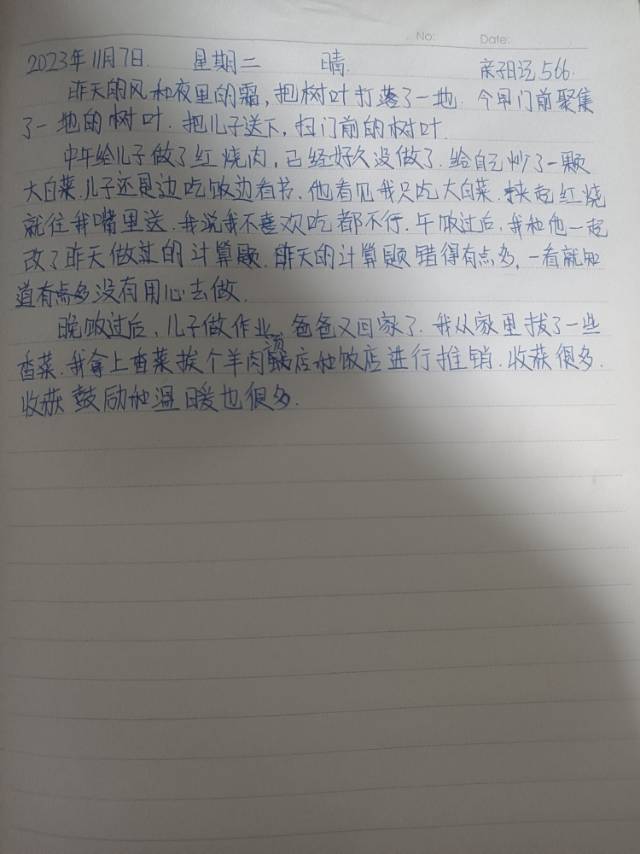 No: Date:
2023年11月7日 星期二 晴 亲子日记566.
昨天的风和夜里的霜,把树叶打落了一地. 今早门前聚集
了一地的树叶.把儿子送下,扫门前的树叶.
中午给儿子做了红烧肉,已经好久没做了.给自己炒了一颗
大白菜.儿子还是边吃饭边看书.他看见我只吃大白菜.夹起红烧
就往我嘴里送.我说我不喜欢吃都不行.午饭过后,我和他一起
改了昨天做过的计算题.昨天的计算题错得有点多,一看就知
道有点多没有用心去做.
晚饭过后,儿子做作业,爸爸又回家了.我从家里拔了一些
香菜.我拿上香菜挨个羊肉汤店和饭店进行推销.收获很多.
收获鼓励和温暖也很多.